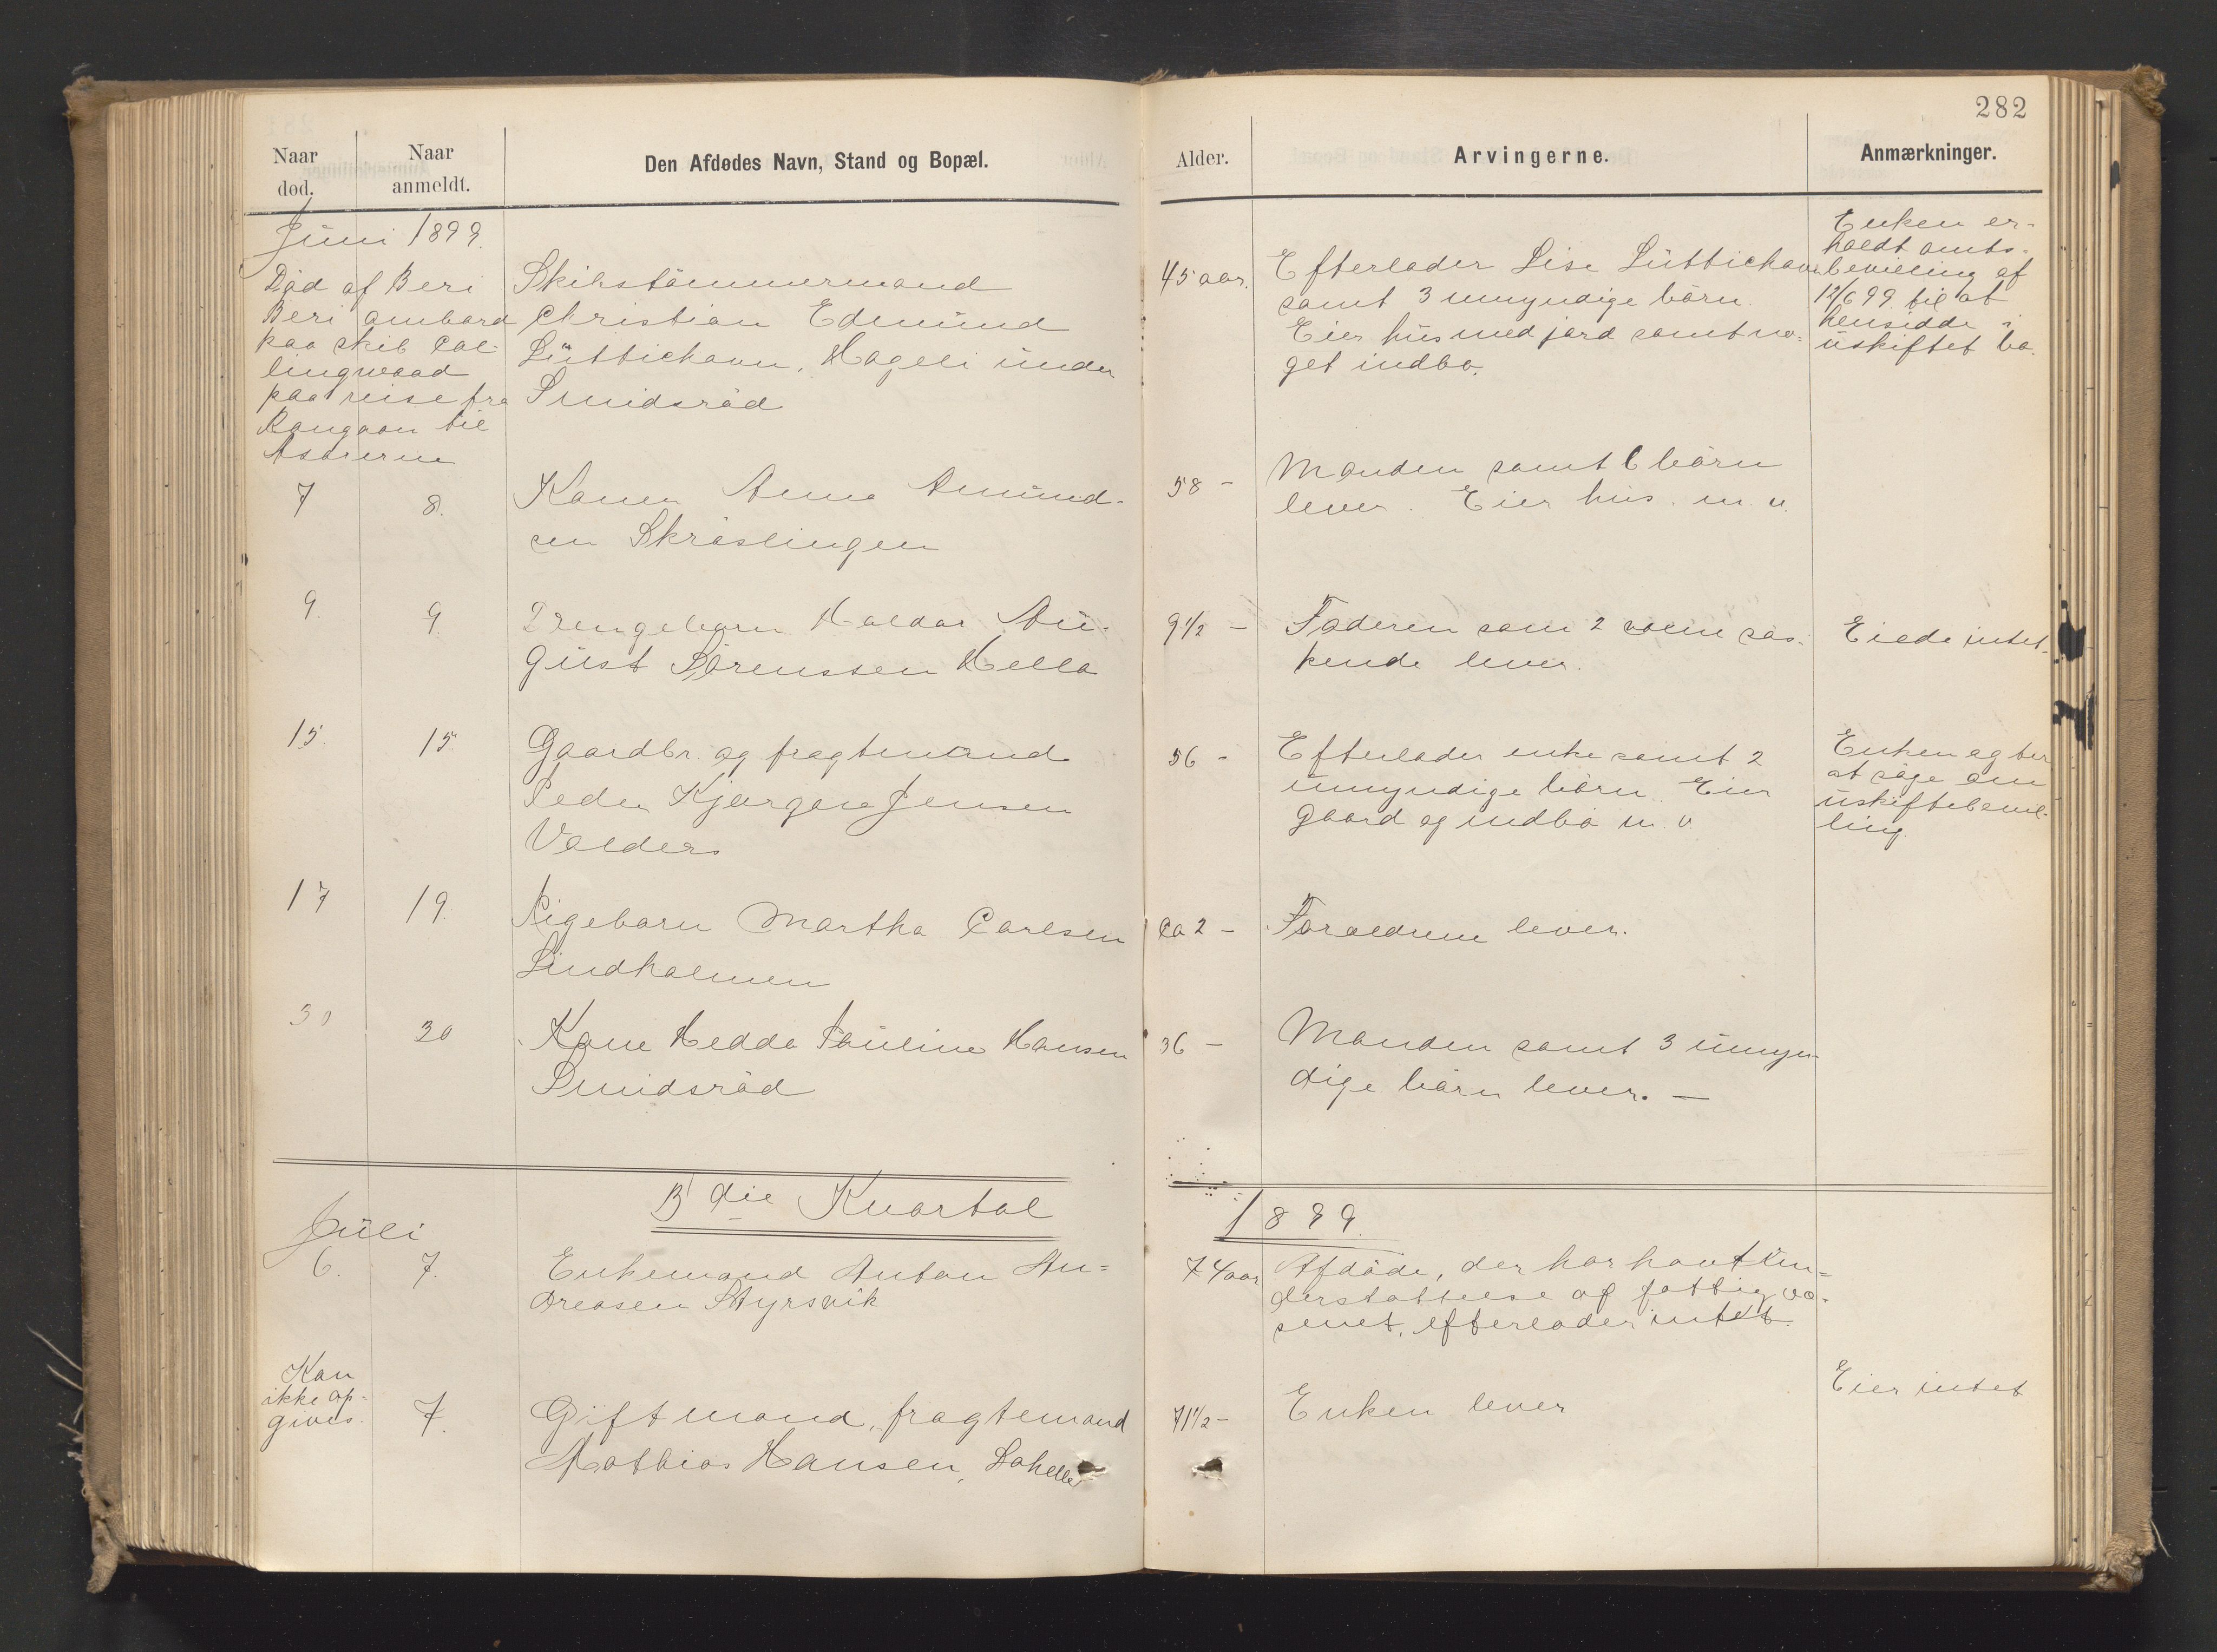 282
Naar
død.
Naar
anmeldt.
Den Afdødes Navn, Stand og Bopæl.
Alder.
Arvingerne.
Anmærkninger.
Juni 1899.
Död af Beri
Beri ombord
paa skib Col-
lingwood
paa reise fra
Rangoon til
Asorerne
Skibstömmermand
Christian Edmund
Lüttichaun, Hageli under
Smidsröd
45 aar.
Efterlader Lise Lüttichaun
samt 3 umyndige börn.
Eier hus med jord samt no-
get indbo.
Enken er-
holdt amts-
bevilling af
12/6 99 til at
hensidde i
uskiftet bo.
7
8.
Konen Anna Amund-
sen Skröslingen
58 -
Manden samt 6 börn
lever. Eier hus. m. v.
9.
9.
Drengebarn Haldor Au-
gust Sörenssen Hella
9 1/2 -
Faderen som 2 voxne sös-
kende lever.
Eiede intet.
15.
15
Gaardbr. og fragtemand
Peder Kjørgen Jensen
Valders
56 -
Efterlader enke samt 2
umyndige börn. Eier
gaard og indbo m. v
Enken agter
at söge om
uskiftebevil-
ling.
17
19.
Pigebarn Martha Carlsen
Lindholmen
Ca 2 -
Foraeldrene lever.
30
30
Kone Hedda Pauline Hansen
Smidsröd
36 -
Manden samt 3 umyn-
dige börn lever. -
3 die Kvartal
1899.
Juli
6.
7.
Enkemand Anton An-
dreasen Styrsvik
74 aar
Afdöde, der har havt un-
derstöttelse af fattigvæ-
senet, efterlader intet.
Kan
ikke op-
gives.
7.
Gift mand, fragtemand
Mathias Hansen,
71 1/2 -
Enken lever
Eier intet